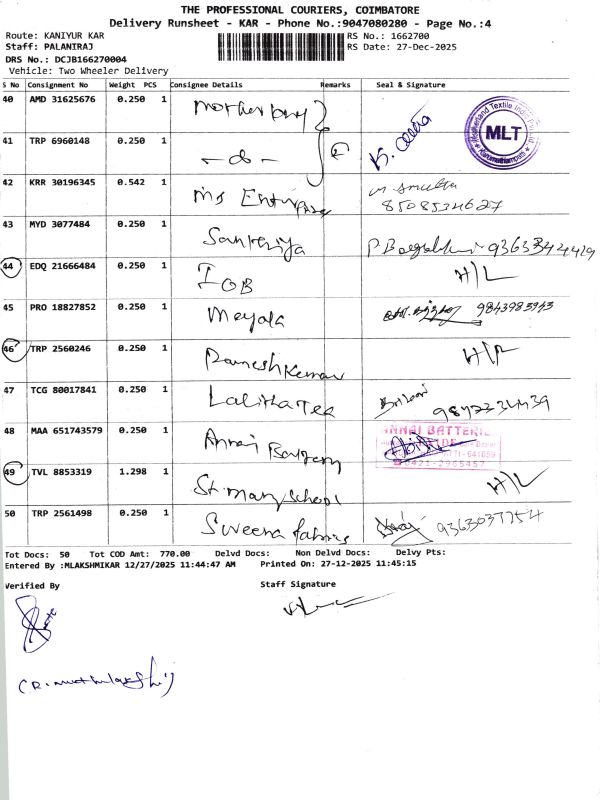 THE PROFESSIONAL COURIERS, COIMBATORE
Delivery Runsheet - KAR - Phone No.:9047080280 - Page No.:4
Route: KANIYUR KAR RS No.: 1662700
Staff: PALANIRAJ RS Date: 27-Dec-2025
DRS No.: DCJB166270004
Vehicle: Two Wheeler Delivery
S No Consignment No Weight PCS Consignee Details Remarks Seal & Signature
40 AMD 31625676 0.250 1
MLT
41 TRP 6960148 0.250 1 - do -
42 KRR 30196345 0.542 1 Ms Enterprises
8508534627
43 MYD 3077484 0.250 1
44 EDQ 21666484 0.250 1 IOB H/L
45 PRO 18827852 0.250 1 Meyala 9843983943
46 TRP 2560246 0.250 1 Ramesh Kumar
47 TCG 80017841 0.250 1 Lalitha Tex 9842334439
48 MAA 651743579 0.250 1 Annai Battery
ANNAI BATTERI
0421-2965457
49 TVL 8853319 1.298 1 St. mary school H/L
50 TRP 2561498 0.250 1 Sweena fabrics
Tot Docs: 50 Tot COD Amt: 770.00 Delvd Docs: Non Delvd Docs: Delvy Pts:
Entered By :MLAKSHMIKAR 12/27/2025 11:44:47 AM Printed On: 27-12-2025 11:45:15
Verified By Staff Signature
(R. muthulakshmi)